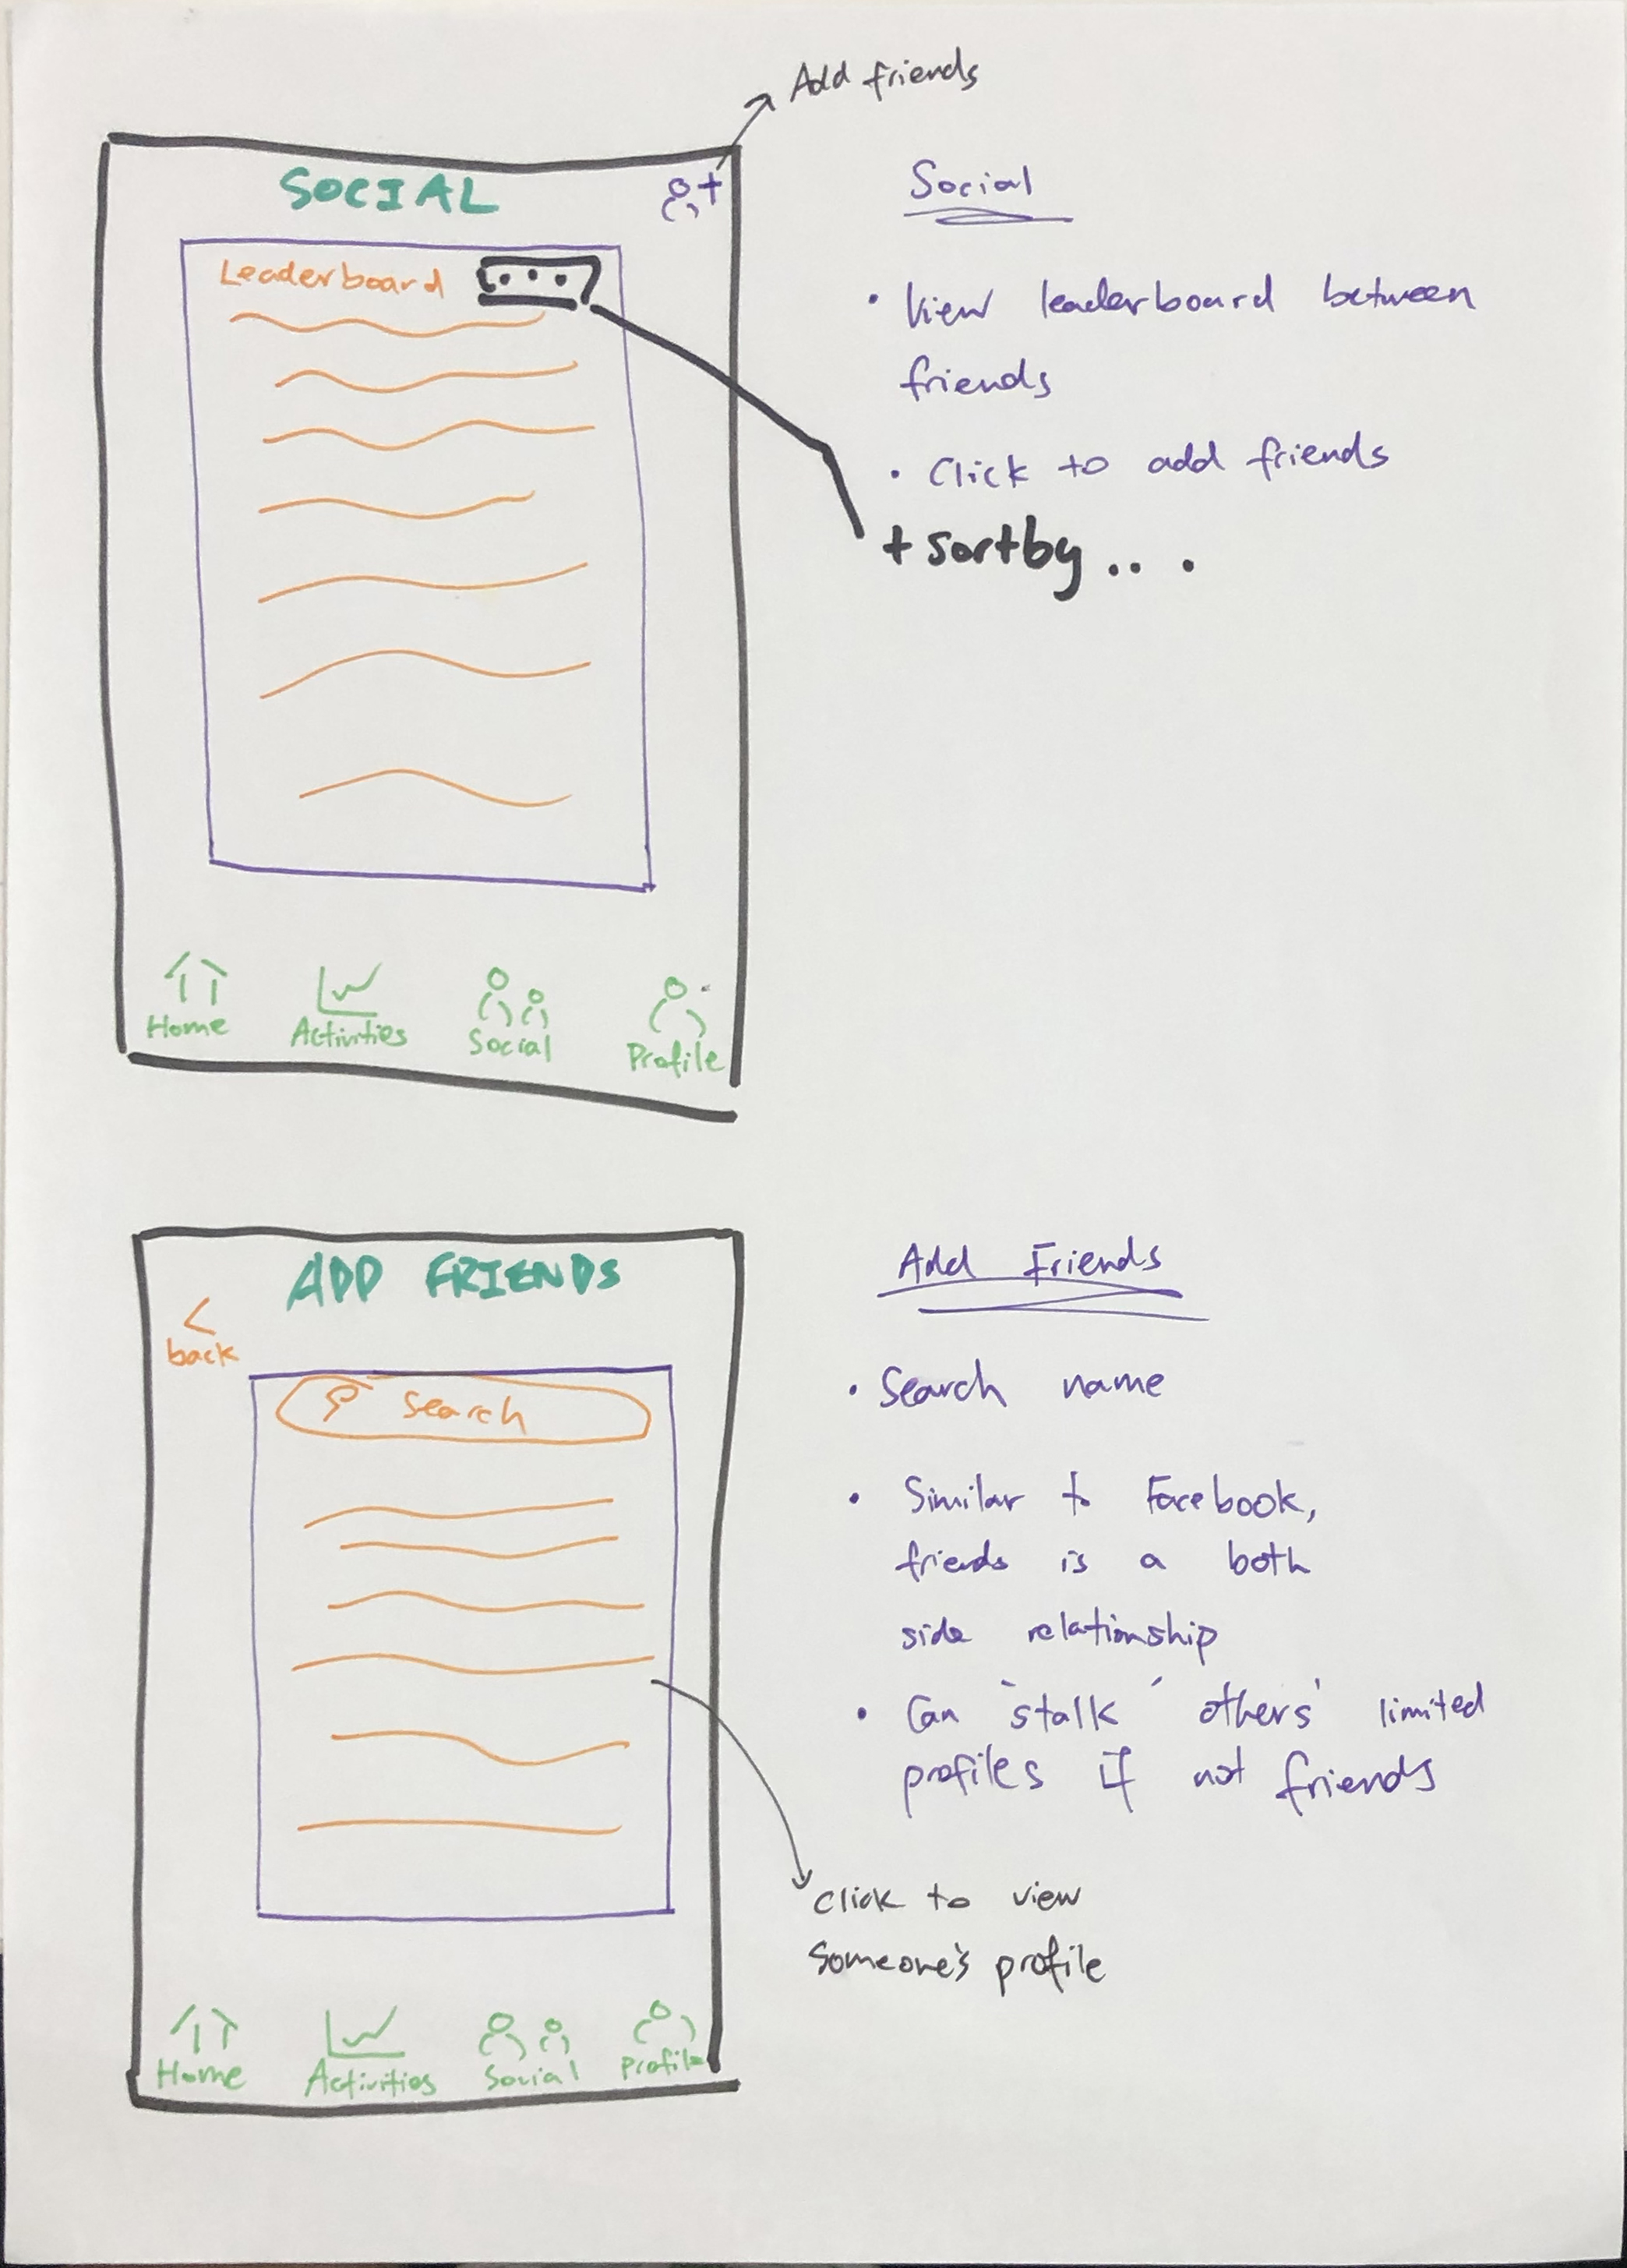 Add friends
SOCIAL
Leaderboard ...
Home
Activities
Social
Profile
Social
• View leaderboard between
friends
• Click to add friends
+ sortby...
ADD FRIENDS
<
back
Search
Home
Activities
Social
Profile
Add Friends
• Search name
• Similar to Facebook,
friends is a both
side relationship
• Can "stalk" others' limited
profiles if not friends
click to view
someone's profile